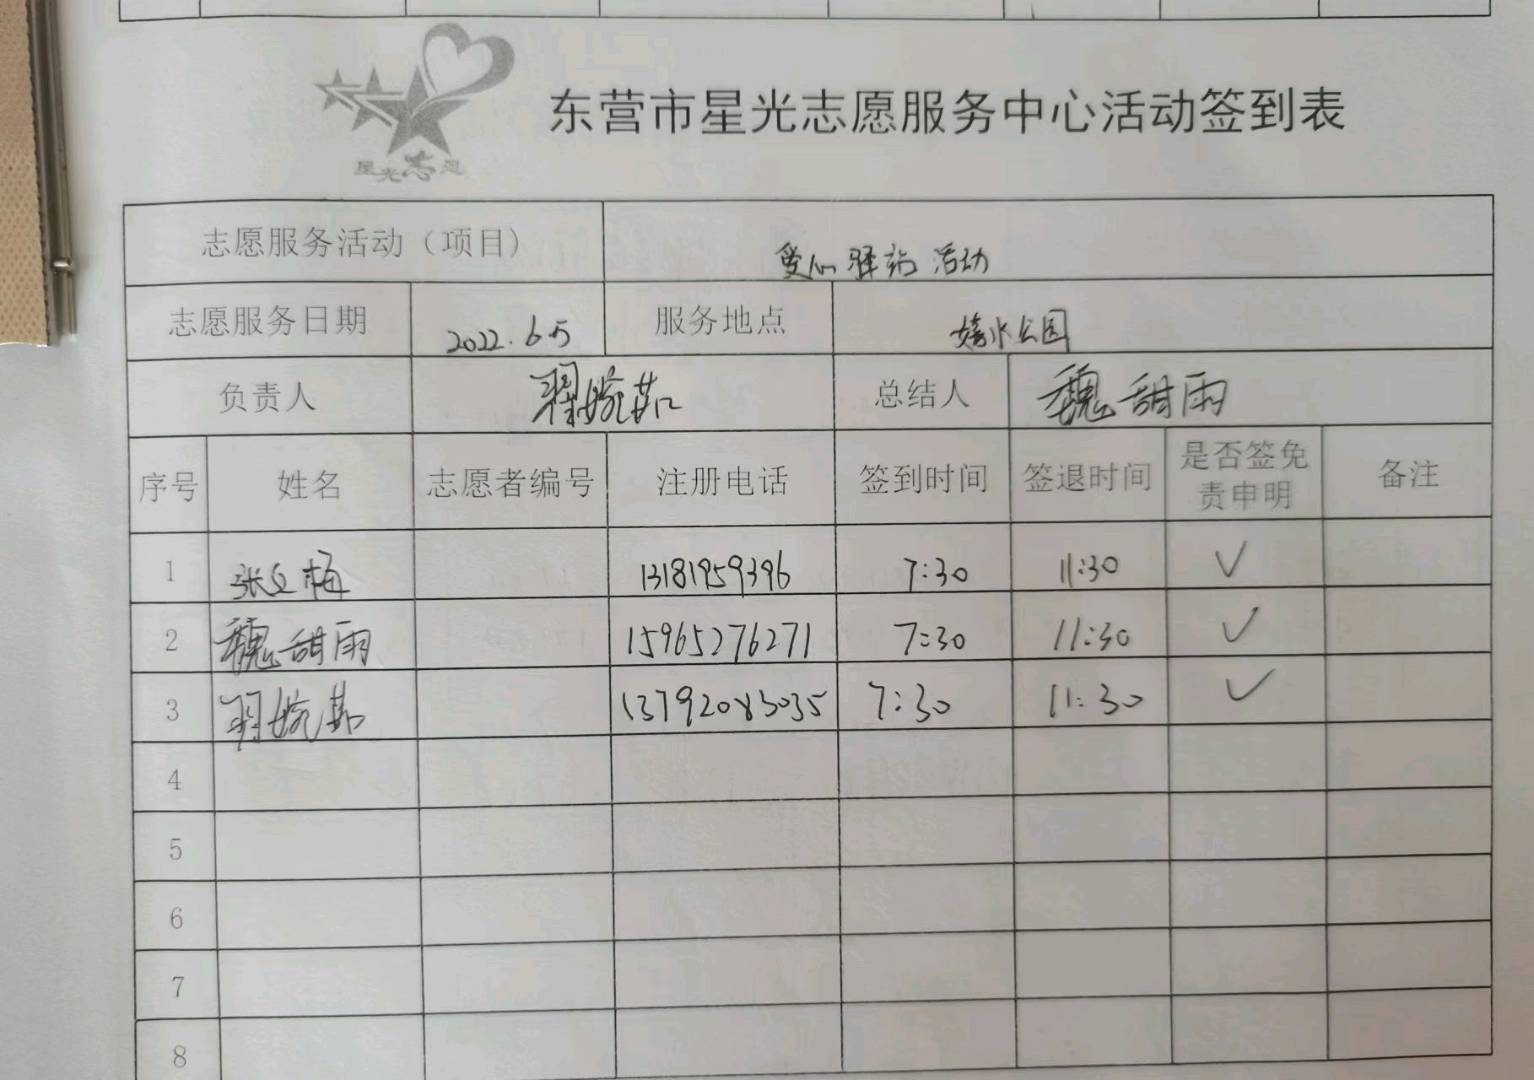 星光志愿
东营市星光志愿服务中心活动签到表
志愿服务活动（项目） 爱心驿站活动
志愿服务日期 2022.6.5 服务地点 嬉水公园
负责人 翟婉茹 总结人 魏甜雨
序号 姓名 志愿者编号 注册电话 签到时间 签退时间 是否签免责申明 备注
1 张文梅 13181959396 7:30 11:30 ✓
2 魏甜雨 15965276271 7:30 11:30 ✓
3 翟婉茹 13792083035 7:30 11:30 ✓
4
5
6
7
8